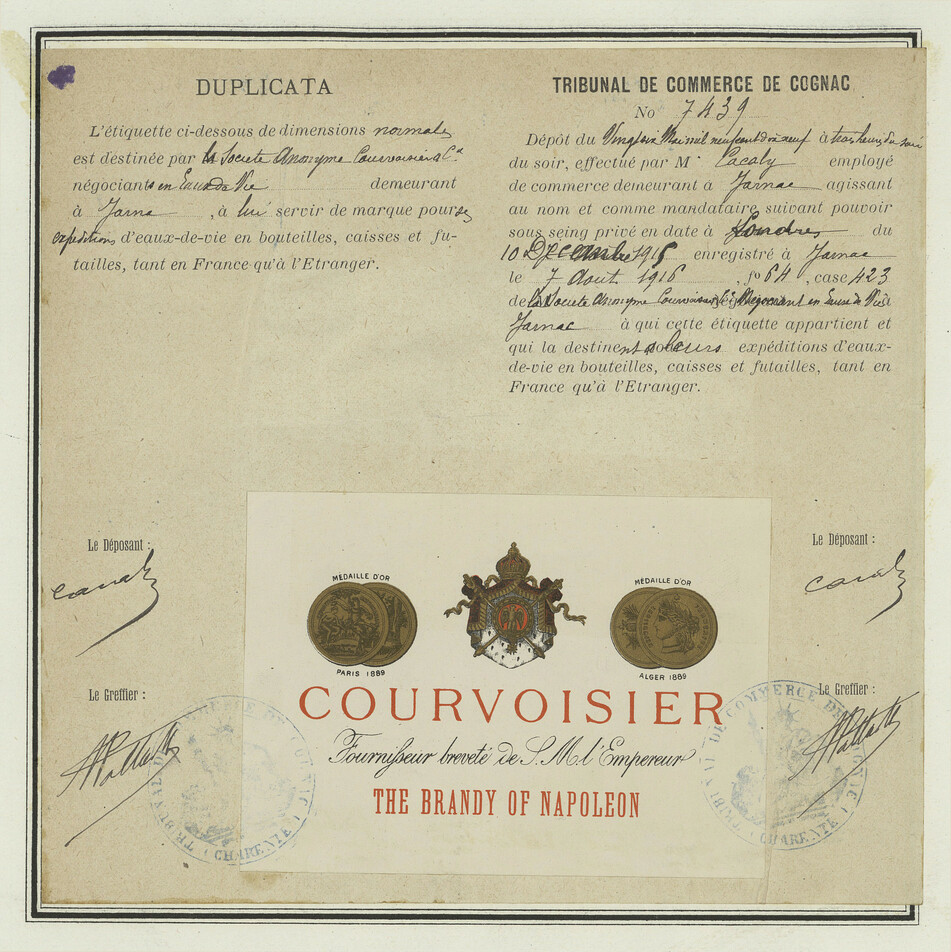 DUPLICATA
L'étiquette ci-dessous de dimensions normales
est déstinée par la Societe Anonyme Courvoisier & Cie
négociants en Eaux de Vie demeurant
à Jarnac, à lui servir de marque pour ses
expéditions d'eaux-de-vie en bouteilles, caisses et fu-
tailles, tant en France qu'à l'Etranger.
TRIBUNAL DE COMMERCE DE COGNAC
No 7439
Dépôt du Vingt Mai mil neuf cent dix neuf à trois heures du soir
du soir, effectué par M. Cacaly employé
de commerce demeurant à Jarnac agissant
au nom et comme mandataire suivant pouvoir
sous seing privé en date à Londres du
10 Décembre 1915 enregistré à Jarnac
le 7 Août 1916, fo 64, case 423
de la Societe Anonyme Courvoisier Négociant en Eaux de Vie à
Jarnac à qui cette étiquette appartient et
qui la destinent à leurs expéditions d'eaux-
de-vie en bouteilles, caisses et futailles, tant en
France qu'à l'Etranger.
Le Déposant :
Le Déposant :
Le Greffier :
Le Greffier :
MÉDAILLE D'OR
PARIS 1889
MÉDAILLE D'OR
ALGER 1889
COURVOISIER
Fournisseur breveté de S. M. l'Empereur
THE BRANDY OF NAPOLEON
TRIBUNAL DE COMMERCE DE COGNAC (CHARENTE)
TRIBUNAL DE COMMERCE DE COGNAC (CHARENTE)